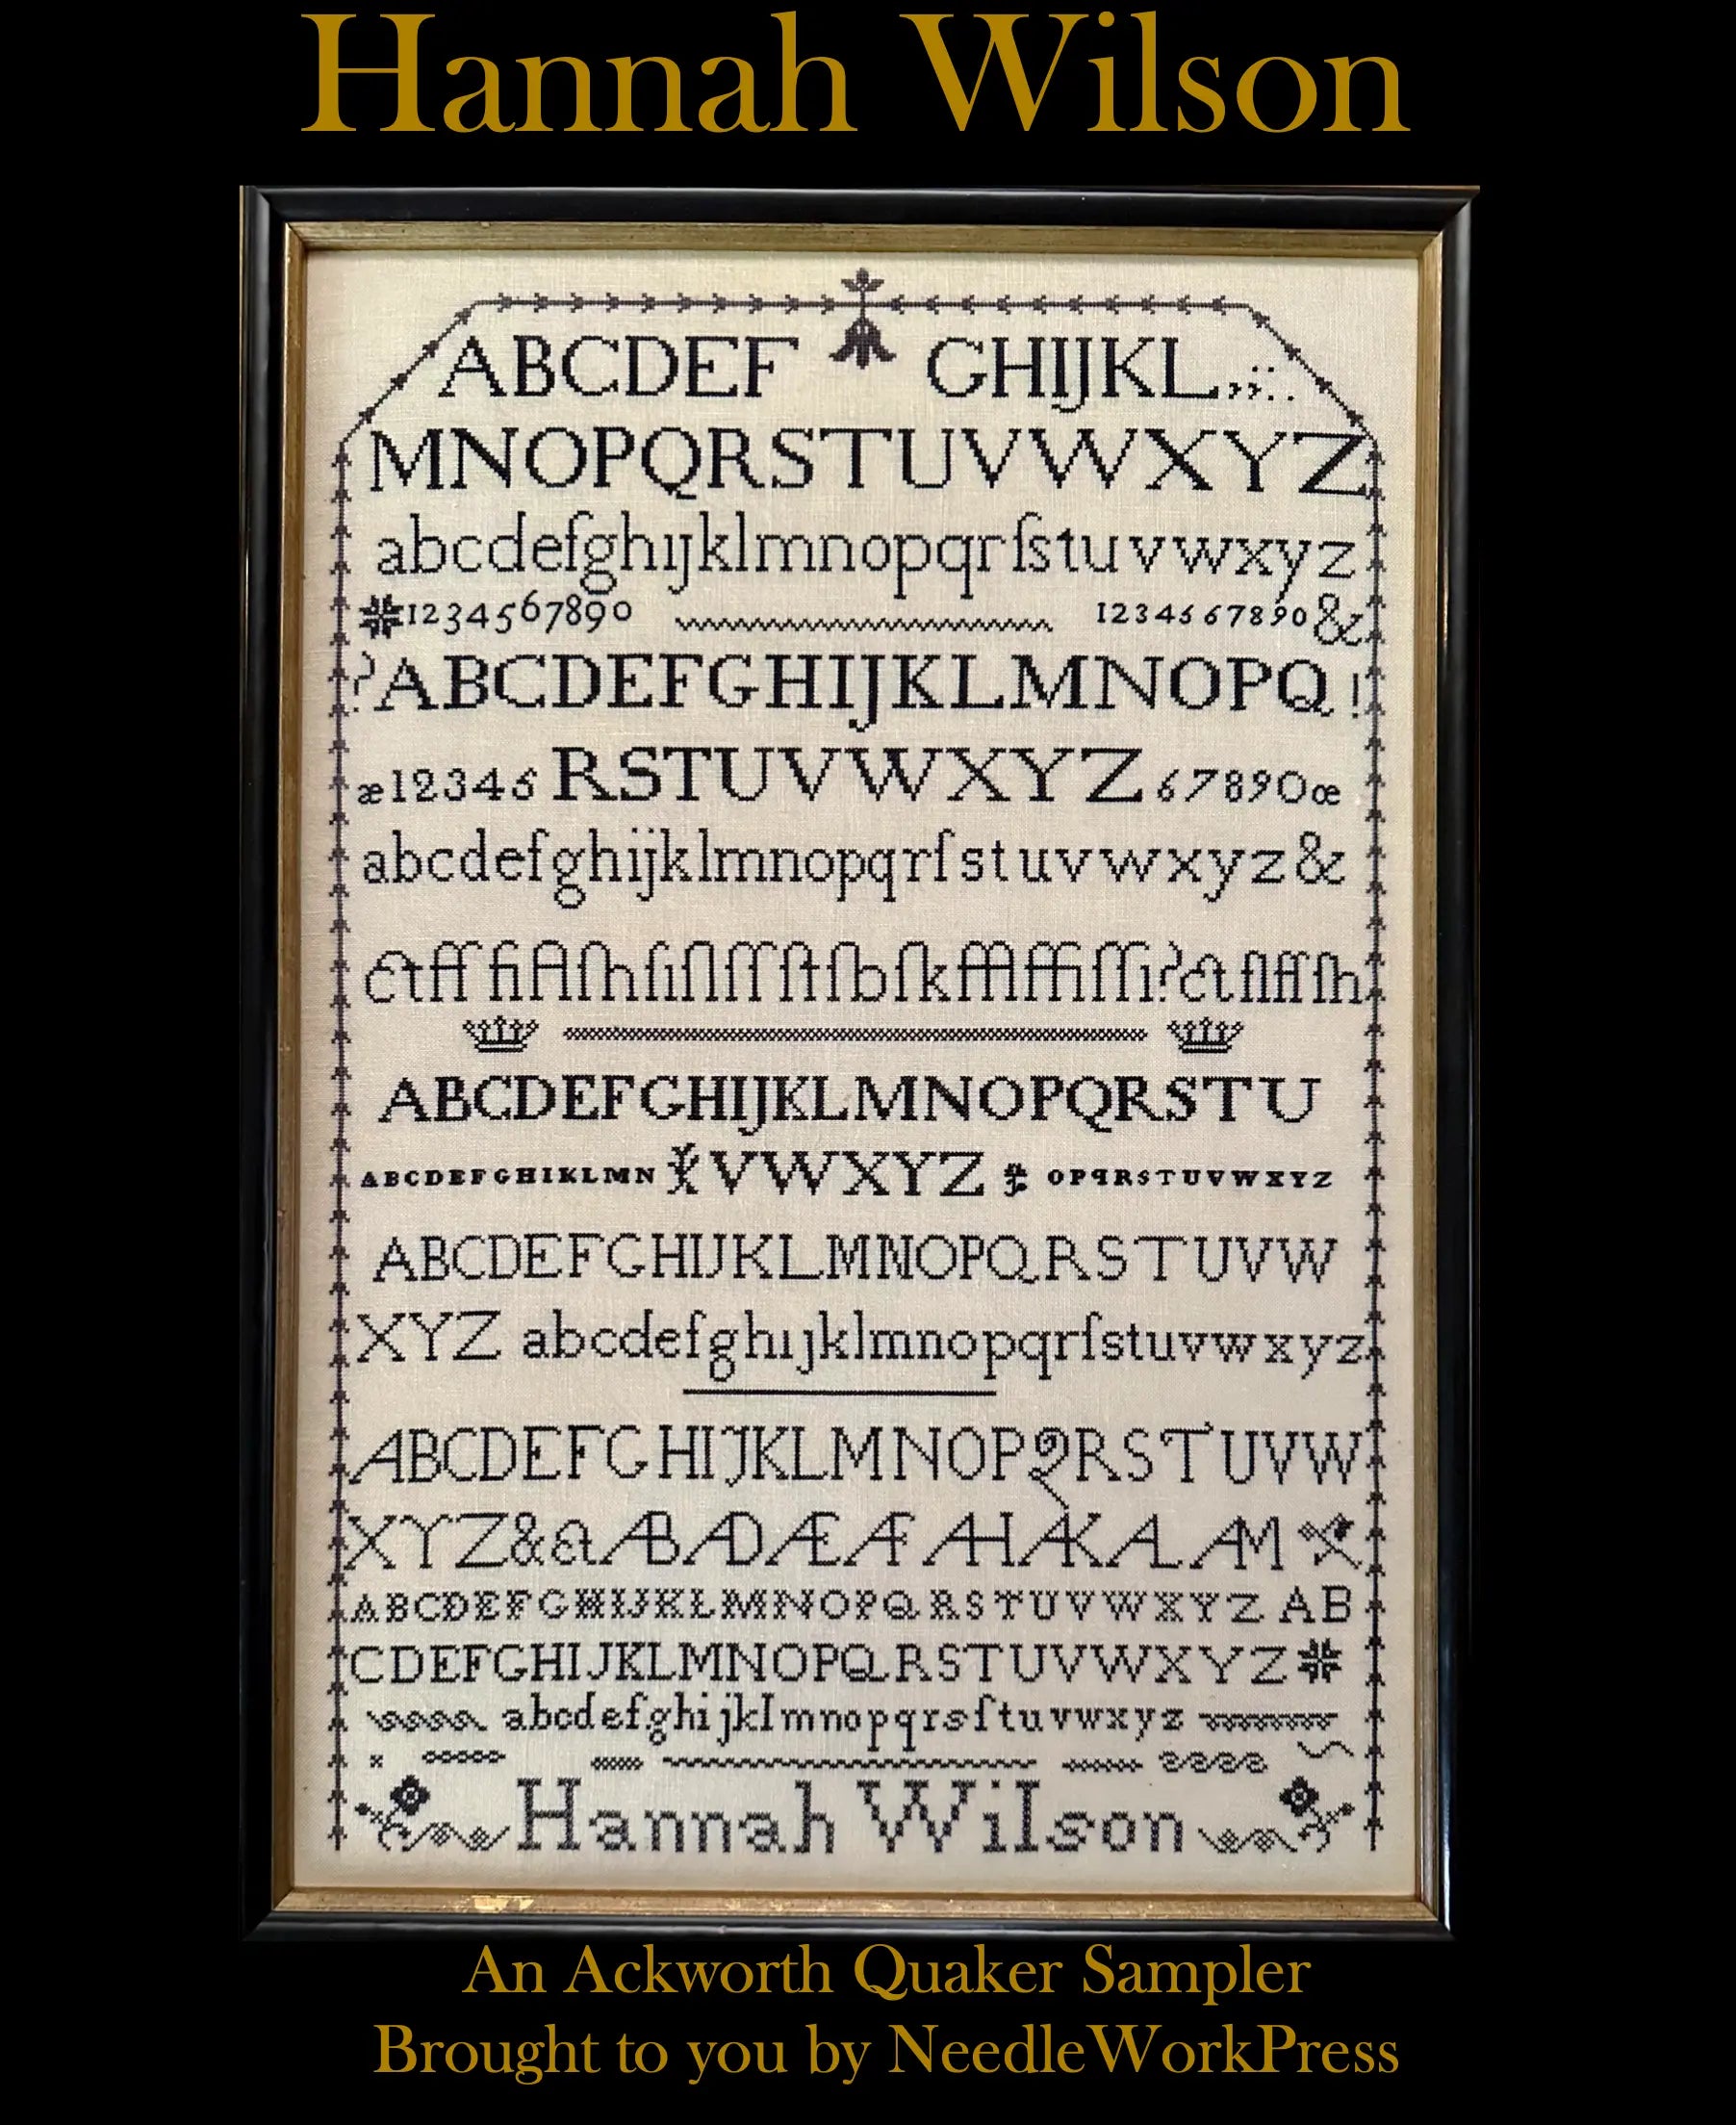 Hannah Wilson
ABCDEF GHIJKL,;:.
MNOPQRSTUVWXYZ
abcdefghijklmnopqrſstuvwxyz
1234567890 1234567890&
?ABCDEFGHIJKLMNOPQ!
æ12345 RSTUVWXYZ 67890œ
abcdefghijklmnopqrſstuvwxyz&
ctffﬁflſhſiſlſſſtſbſkfflffiſſi?ctflffſh
ABCDEFGHIJKLMNOPQRSTU
ABCDEFGHIKLMN VWXYZ OPqRSTUVWXYZ
ABCDEFGHIJKLMNOPQRSTUVW
XYZ abcdefghıȷklmnopqrſstuvwxyz
ABCDEFGHIJKLMNOPQRSTUVW
XYZ&ct AB AD Æ AF AH AK AL AM
ABCDEFGHIJKLMNOPQRSTUVWXYZ AB
CDEFGHIJKLMNOPQRSTUVWXYZ
abcdefghijklmnopqrsſtuvwxyz
Hannah Wilson
An Ackworth Quaker Sampler
Brought to you by NeedleWorkPress